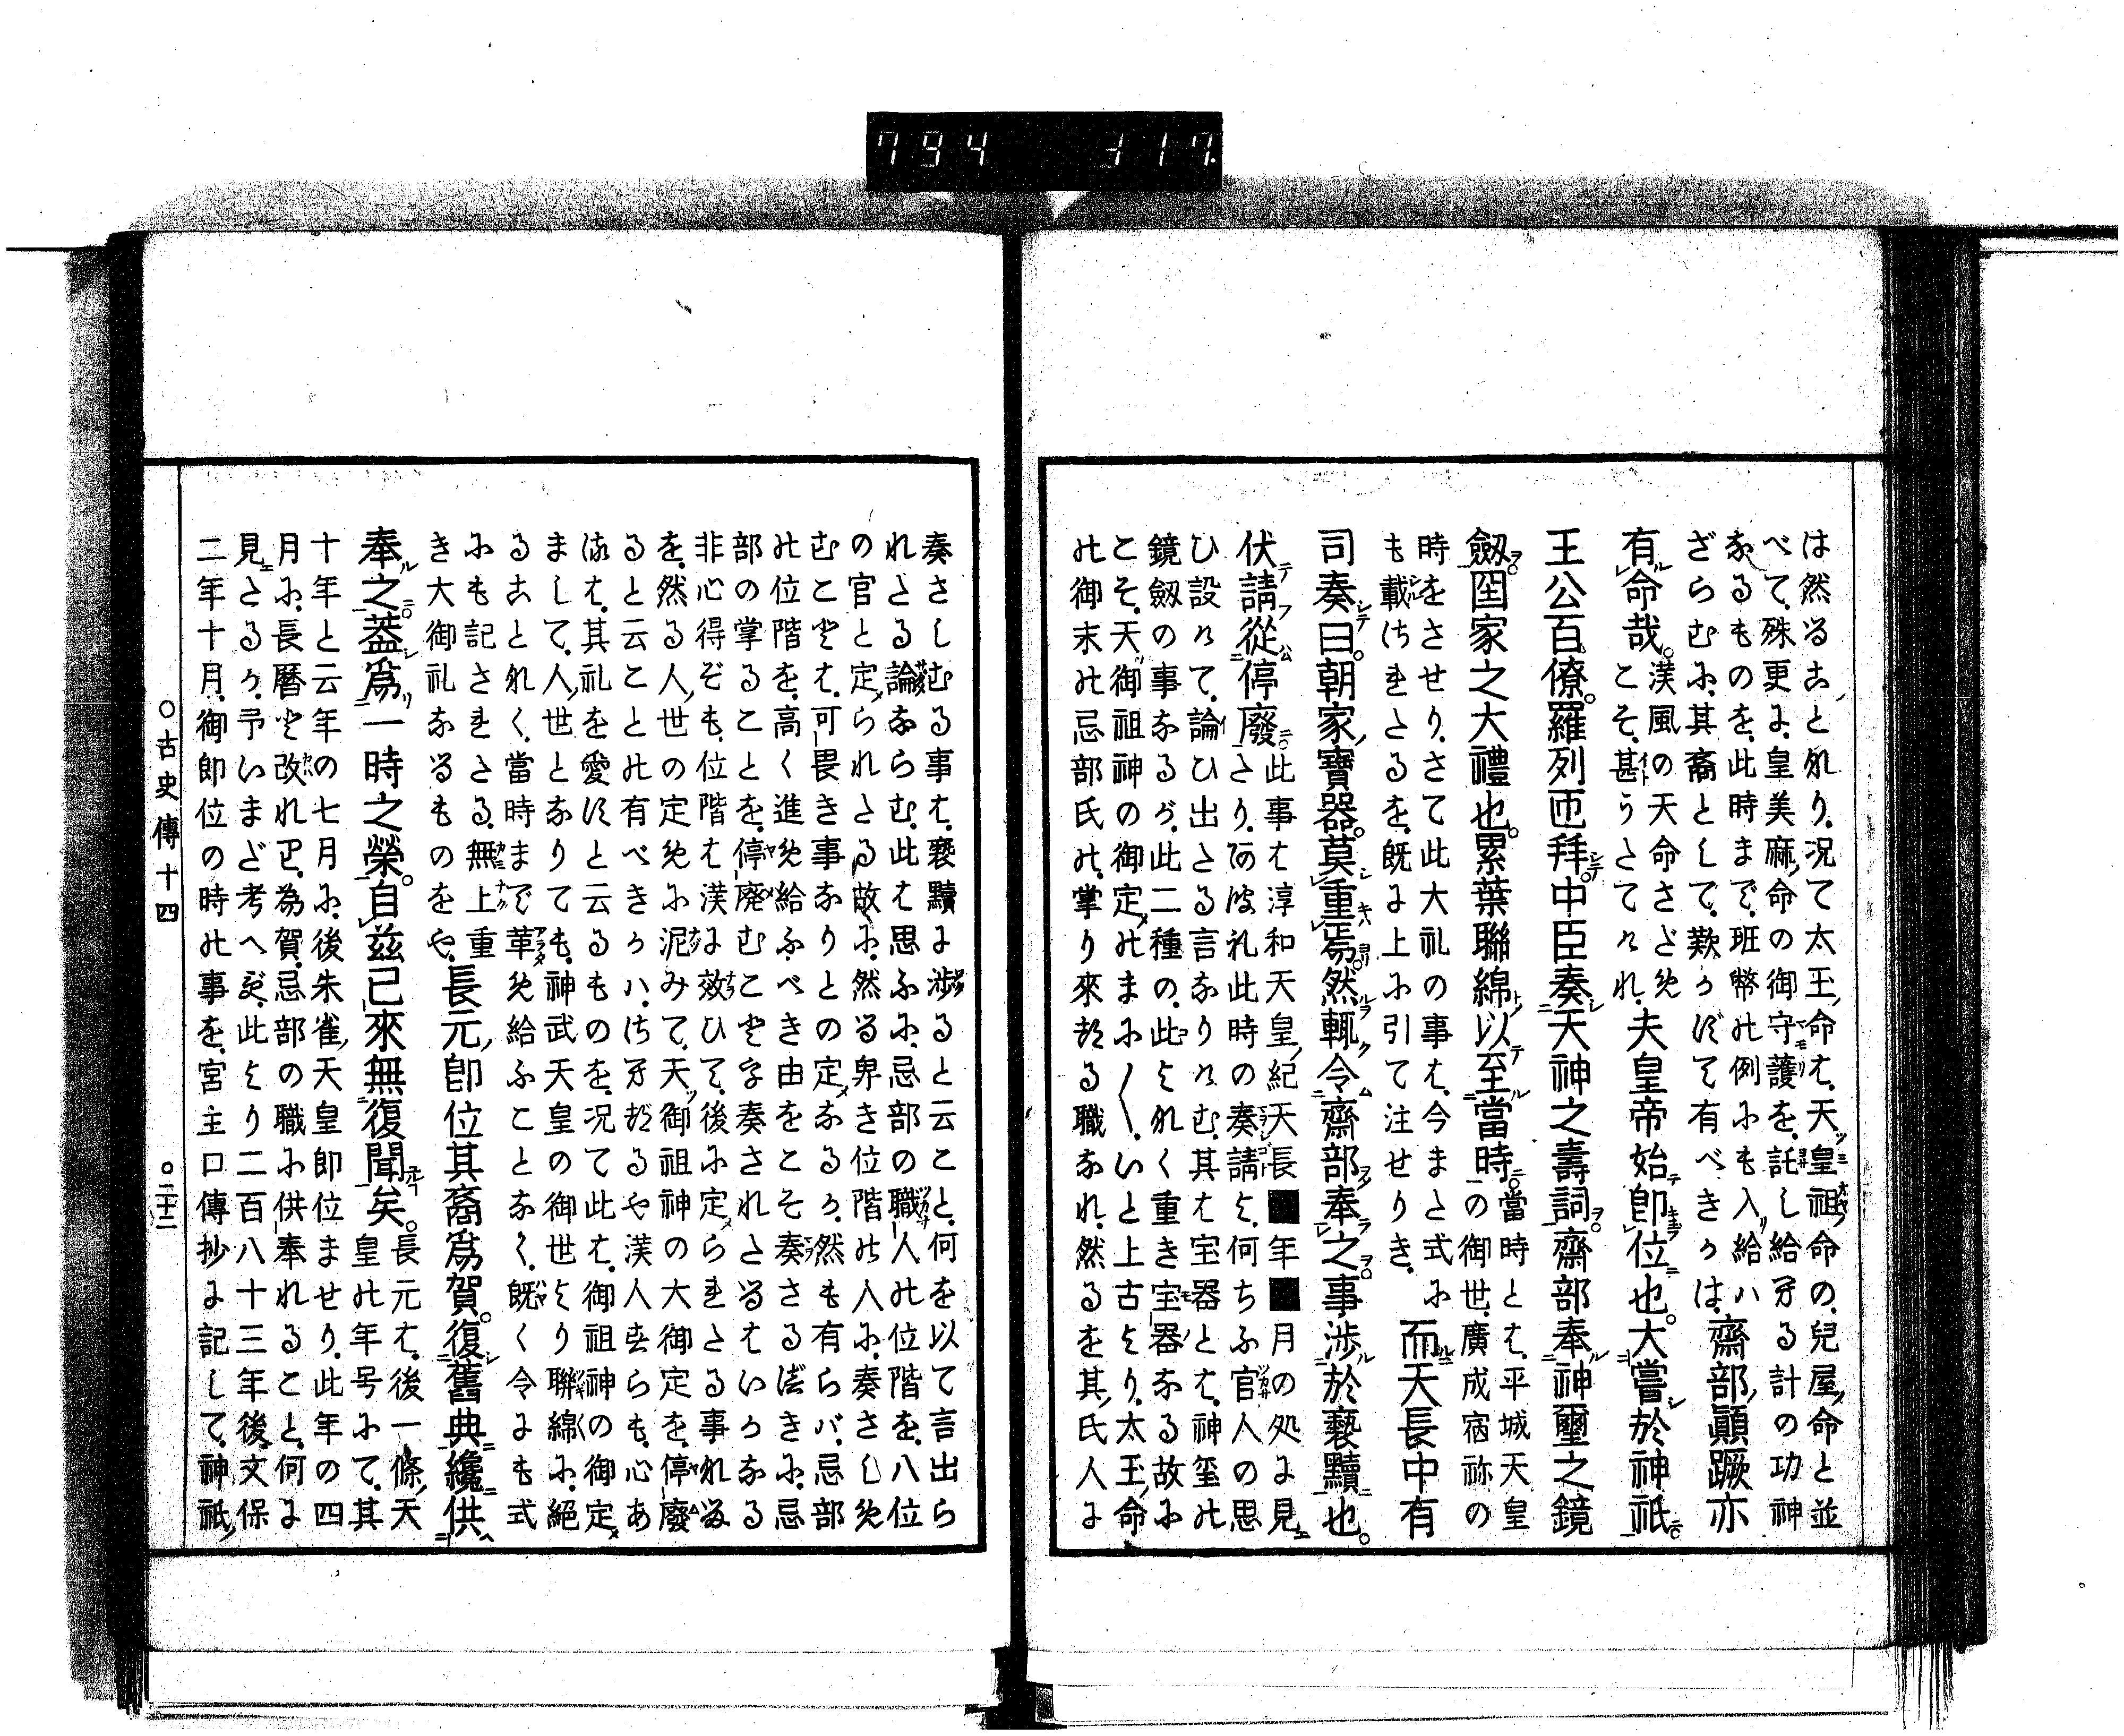 794 317.
は然ることなり．況て太王命は．天皇祖命の．兒屋命と並
べて．殊更に．皇美麻命の御守護を．託し給へる計の功神
なるものを．此時まで．班幣の例にも入給ハ
ざらむに．其裔として．歎かずて有べきかは．齋部顚蹶亦
有命哉．漢風の天命さだめ
こそ．甚うたてけれ．夫皇帝始即位也．大嘗於神祇
王公百僚．羅列匝拜．中臣奏天神之壽詞．齋部奉神璽之鏡
劔．国家之大禮也．累葉聯綿．以至當時．當時とは．平城天皇
の御世．廣成宿祢の
時をさせり．さて此大礼の事は．今まと式に
も載られたるを．既に上に引て注せりき．而天長中有
司奏曰．朝家寶器．莫重焉．然輙令齋部奉之．事渉於褻黷也．
伏請從停廢．此事は淳和天皇紀天長■年■月の処に見
たり．阿波礼此時の奏請よ．何ちふ官人の思
ひ設けて．論ひ出たる言なりけむ．其は宝器とは．神璽の
鏡劔の事なるが．此二種の．此よなく重き宝器なる故に
こそ．天御祖神の御定のまに〳〵．いと上古より．太王命
の御末の忌部氏の．掌り來れる職なれ．然るを其氏人に
奏さしむる事は．褻黷に渉ると云こと．何を以て言出ら
れたる論ならむ．此は思ふに．忌部の職人の位階を．八位
の官と定られたる故に．然る卑き位階の人に．奏さしめ
むことは．可畏き事なりとの定なるか．然も有らバ．忌部
の位階を．高く進め給ふべき由をこそ奏さるべきに．忌
部の掌ることを．停廃むことを奏されたるはいかなる
非心得ぞも．位階は漢に效ひて．後に定られたる事なる
を．然る人世の定めに泥みて．天御祖神の大御定を．停廢
ると云ことの有べきかハ．はかなるや漢人すらも．心あ
るは．其礼を愛しと云るものを．況て此は．御祖神の御定
まして．人世となりても．神武天皇の御世より聯綿に．絕
ることなく．當時まで革め給ふことなく．既く令にも式
にも記されたる．無上重
き大御礼なるものをや．長元即位其裔爲賀．復舊典纔供
奉之．蓋爲一時之榮．自茲已來無復聞矣．長元は．後一條天
皇の年号にて．其
十年と云年の七月に．後朱雀天皇即位ませり．此年の四
月に．長暦と改れり．為賀．忌部の職に供奉れること．何に
見たるか．予いまだ考へず．此より二百八十三年後．文保
二年十月．御即位の時の事を．宮主口傳抄に記して．神祇
○古史傳十四
○二十二